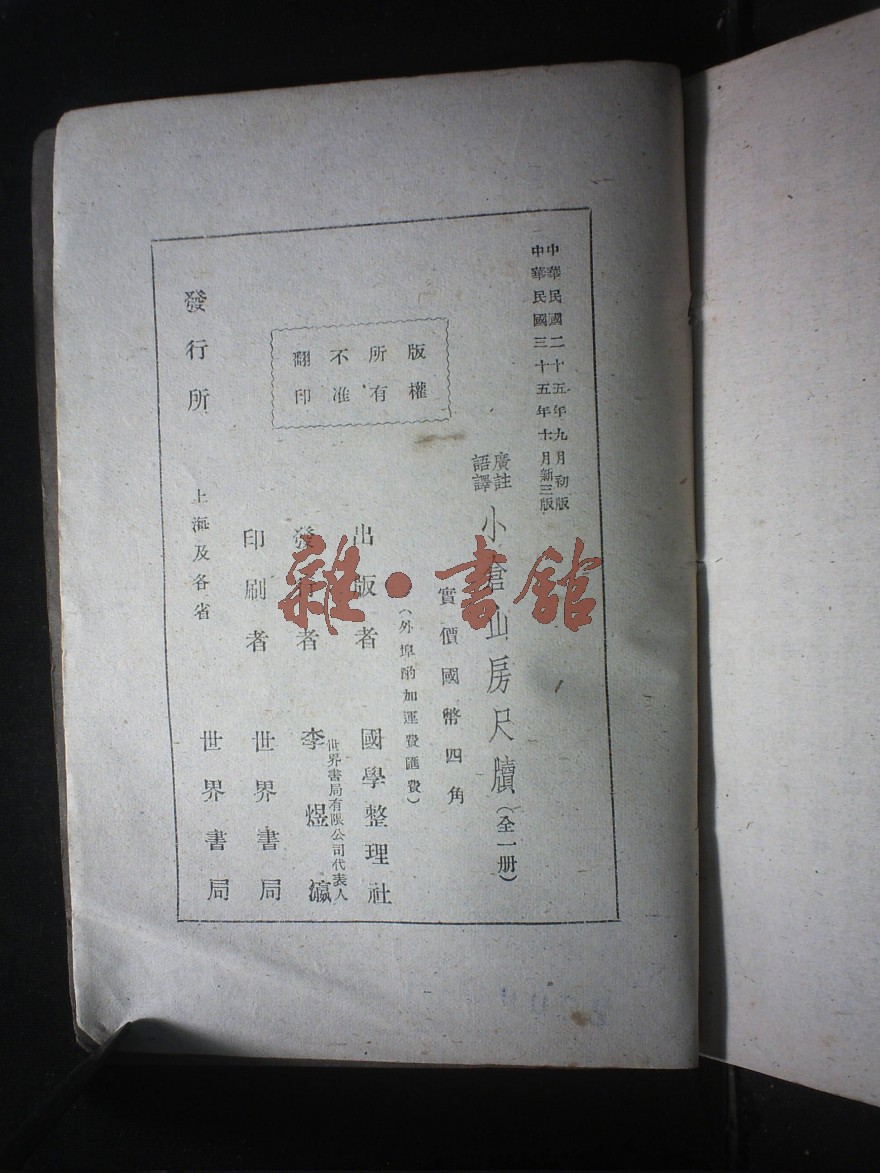 中華民國二十五年九月初版
中華民國三十五年十月新三版
廣註
語譯
小倉山房尺牘(全一册)
實價國幣四角
(外埠酌加運費匯費)
版權
所有
不准
翻印
出版者 國學整理社
發行者 世界書局有限公司代表人
李煜瀛
印刷者 世界書局
發行所 上海及各省 世界書局
雜·書館